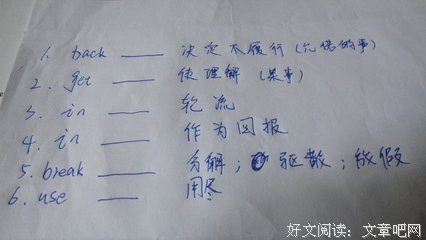 1. back ___ 决定不履行(允诺的事)
2. get ___ 使理解(某事)
3. in ___ 轮流
4. in ___ 作为回报
5. break ___ 分解；驱散；放假
6. use ___ 用尽
好文阅读：文章吧网